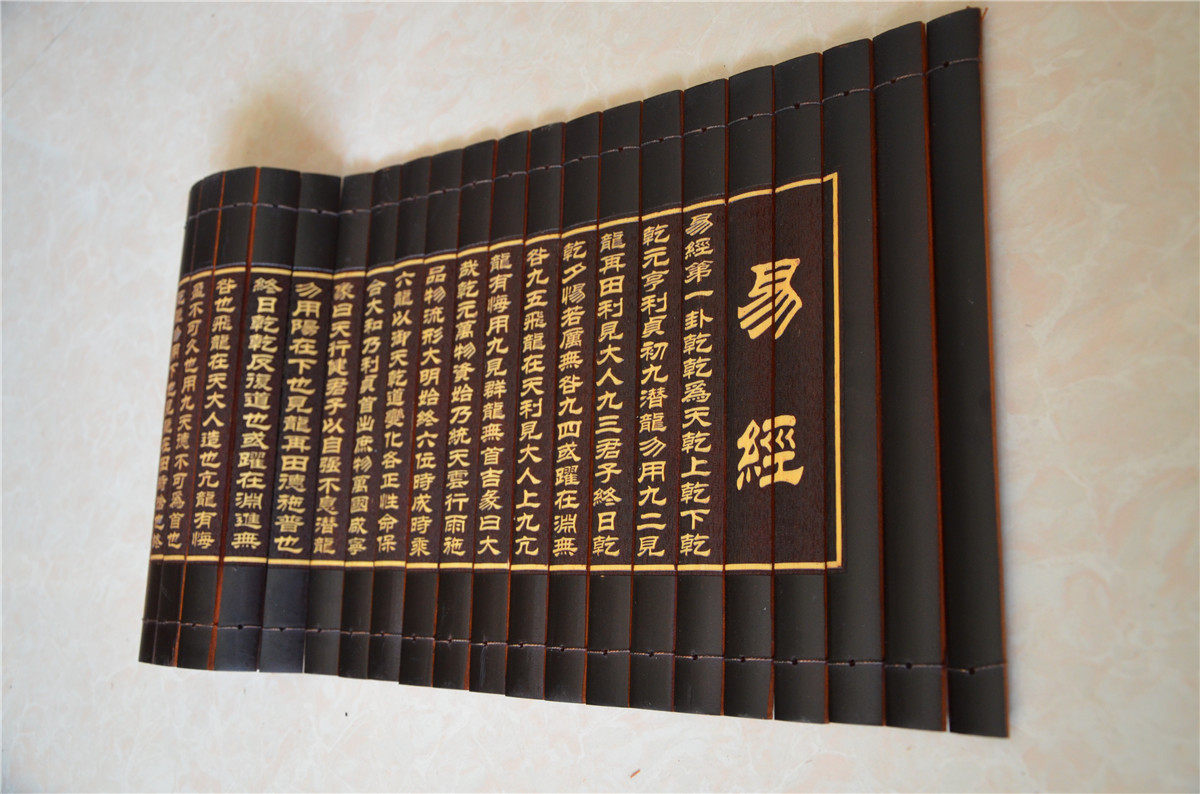 易經
易經第一卦乾乾為天乾上乾下乾
乾元亨利貞初九潛龍勿用九二見
龍再田利見大人九三君子終日乾
乾夕惕若厲無咎九四或躍在淵無
咎九五飛龍在天利見大人上九亢
龍有悔用九見群龍無首吉彖曰大
哉乾元萬物資始乃統天雲行雨施
品物流形大明始終六位時成時乘
六龍以御天乾道變化各正性命保
合大和乃利貞首出庶物萬國咸寧
象曰天行健君子以自強不息潛龍
勿用陽在下也見龍再田德施普也
終日乾乾反復道也或躍在淵進無
咎也飛龍在天大人造也亢龍有悔
盈不可久也用九天德不可為首也